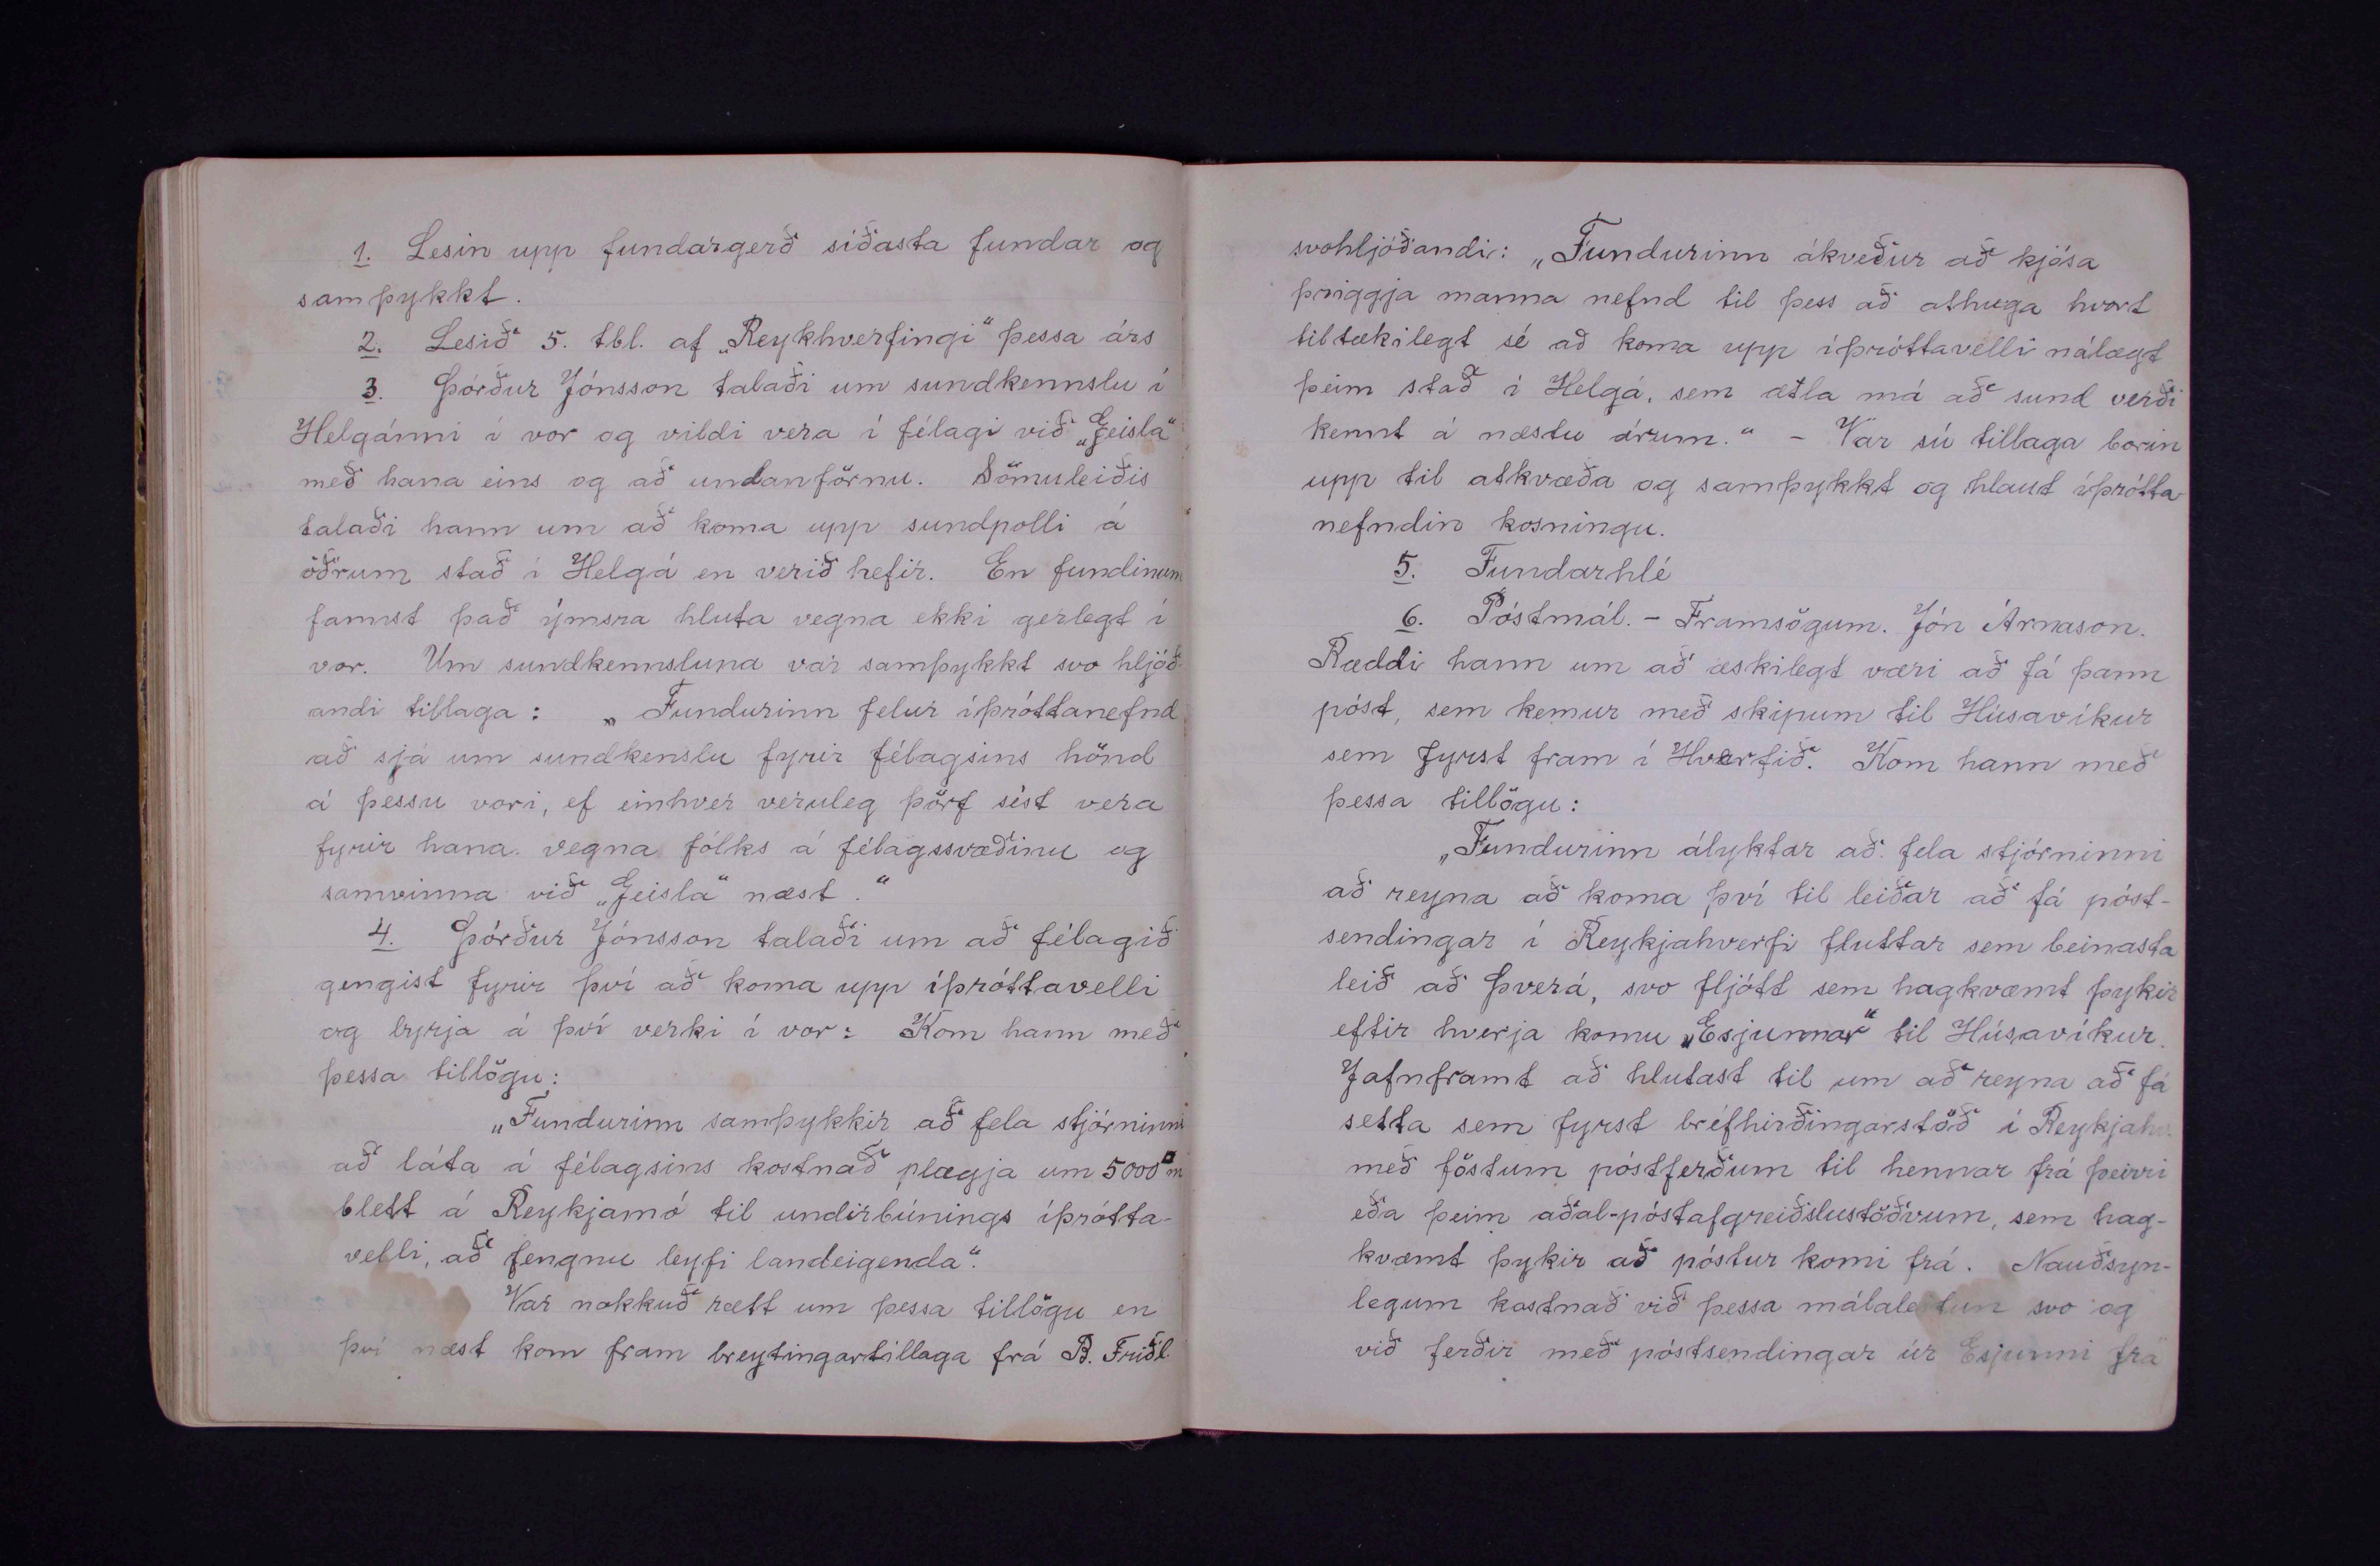 1. Lesin upp fundargerð síðasta fundar og
samþykkt.
2. Lesið 5. tbl. af „Reykhverfingi“ þessa árs
3. Þórður Jónsson talaði um sundkennslu í
Helgánni í vor og vildi vera í félagi við „Geisla“
með hana eins og að undanförnu. Sömuleiðis
talaði hann um að koma upp sundpolli á
öðrum stað í Helgá en verið hefir. En fundinum
fannst það ýmsra hluta vegna ekki gerlegt í
vor. Um sundkennsluna var samþykkt svo hljóð-
andi tillaga: „Fundurinn felur íþróttanefnd
að sjá um sundkenslu fyrir félagsins hönd
á þessu vori, ef einhver veruleg þörf sést vera
fyrir hana vegna fólks á félagssvæðinu og
samvinna við „Geisla“ næst.“
4. Þórður Jónsson talaði um að félagið
gengist fyrir því að koma upp íþróttavelli
og byrja á því verki í vor: Kom hann með
þessa tillögu:
„Fundurinn samþykkir að fela stjórninni
að láta á félagsins kostnað plægja um 5000 □m
blett á Reykjamó til undirbúnings íþrótta-
velli, að fengnu leyfi landeigenda“.
Var nokkuð rætt um þessa tillögu en
því næst kom fram breytingartillaga frá B. Friðl.
svohljóðandi: „Fundurinn ákveður að kjósa
þriggja manna nefnd til þess að athuga hvort
tiltækilegt sé að koma upp íþróttavelli nálægt
þeim stað í Helgá, sem ætla má að sund verði
kennt á næstu árum.“ - Var sú tillaga borin
upp til atkvæða og samþykkt og hlaut íþrótta-
nefndin kosningu.
5. Fundarhlé
6. Póstmál. - Framsögum. Jón Árnason.
Ræddi hann um að æskilegt væri að fá þann
póst, sem kemur með skipum til Húsavíkur
sem fyrst fram í Hverfið. Kom hann með
þessa tillögu:
„Fundurinn ályktar að fela stjórninni
að reyna að koma því til leiðar að fá póst-
sendingar í Reykjahverfi fluttar sem beinasta
leið að Þverá, svo fljótt sem hagkvæmt þykir
eftir hverja komu „Esjunnar“ til Húsavíkur.
Jafnframt að hlutast til um að reyna að fá
setta sem fyrst bréfhirðingarstöð í Reykjahv.
með föstum póstferðum til hennar frá þeirri
eða þeim aðal-póstafgreiðslustöðvum, sem hag-
kvæmt þykir að póstur komi frá. Nauðsyn-
legum kostnað við þessa málaleitun svo og
við ferðir með póstsendingar úr Esjunni frá